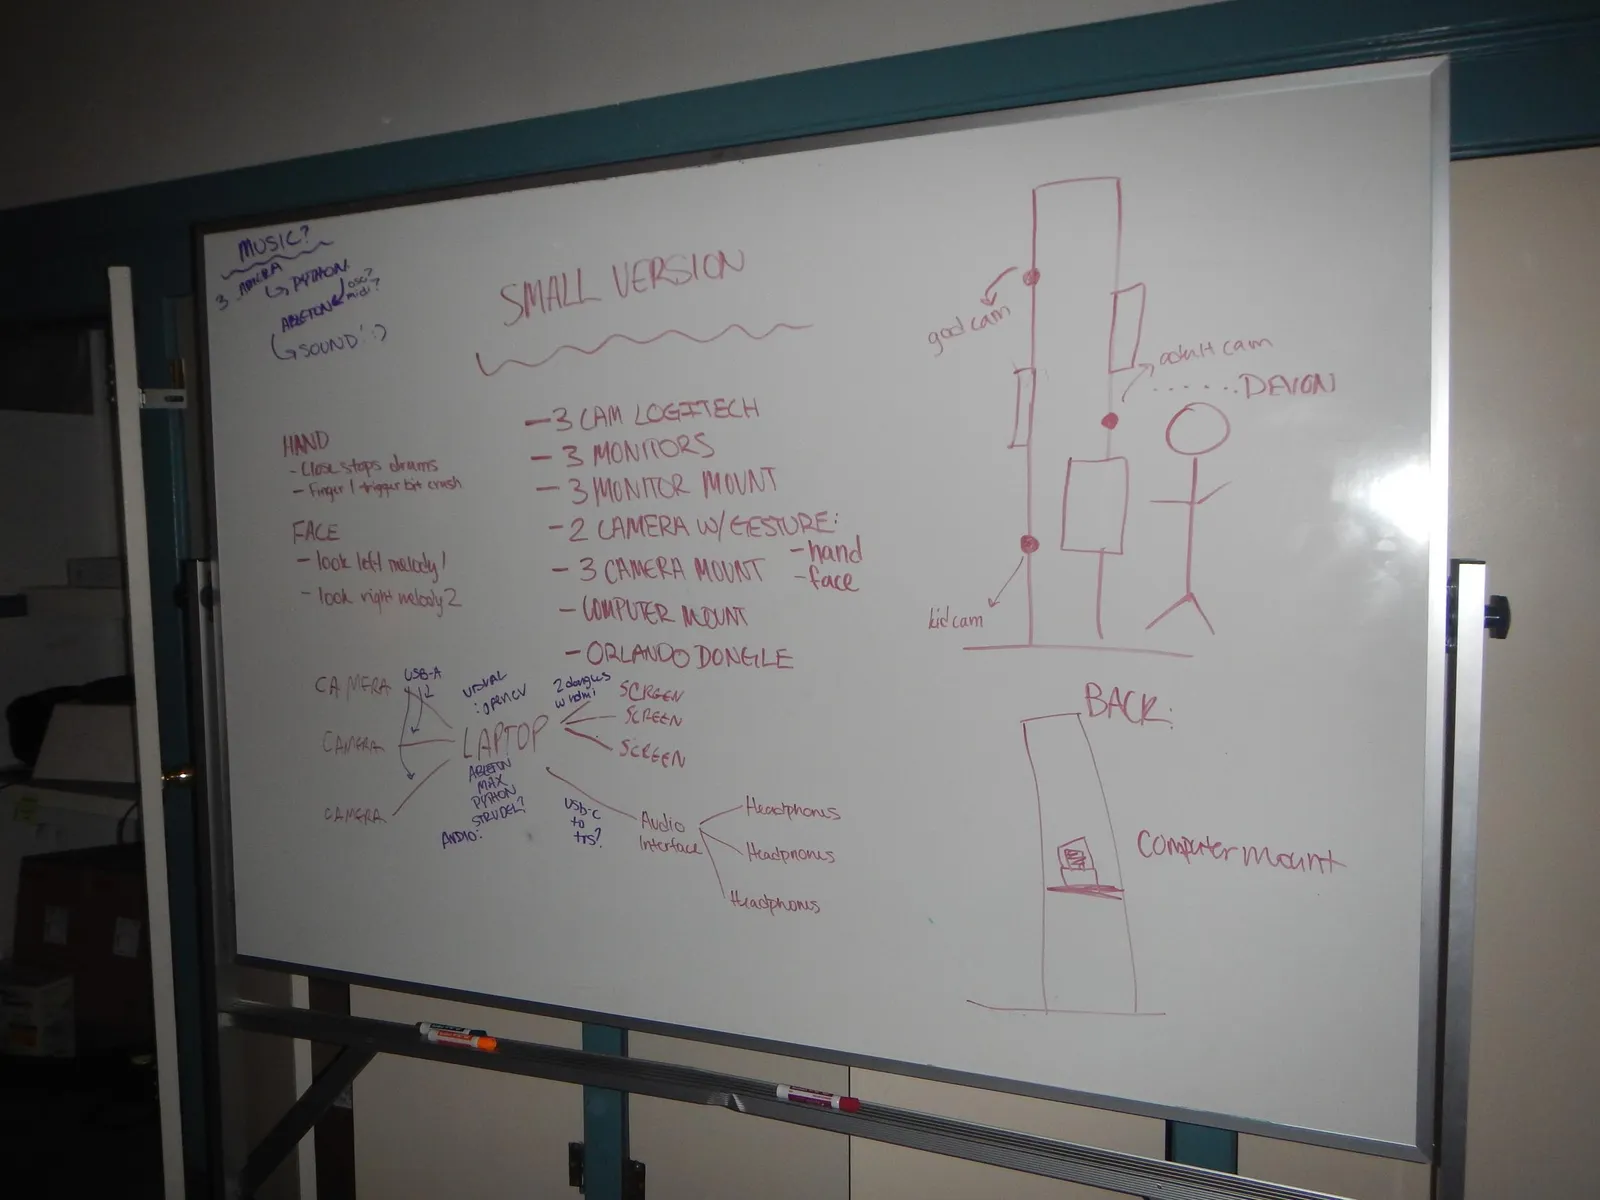 MUSIC?
3 CAMERA
↳ PYTHON
osc?
midi?
ABLETON
↳ SOUND! :)
SMALL VERSION
- 3 CAM LOGITECH
- 3 MONITORS
- 3 MONITOR MOUNT
- 2 CAMERA W/ GESTURE:
- hand
- face
- 3 CAMERA MOUNT
- COMPUTER MOUNT
- ORLANDO DONGLE
HAND
- Close stops drums
- Finger 1 trigger bit crush
FACE
- look left melody 1
- look right melody 2
CAMERA
CAMERA
CAMERA
USB-A
VISUAL
: OPENCV
LAPTOP
ABLETON
MAX
PYTHON
STRUDEL?
AUDIO:
2 dongles
w hdmi
SCREEN
SCREEN
SCREEN
USB-C
to
trs?
Audio
Interface
Headphones
Headphones
Headphones
good cam
adult cam
DEVON
kid cam
BACK:
Computer mount